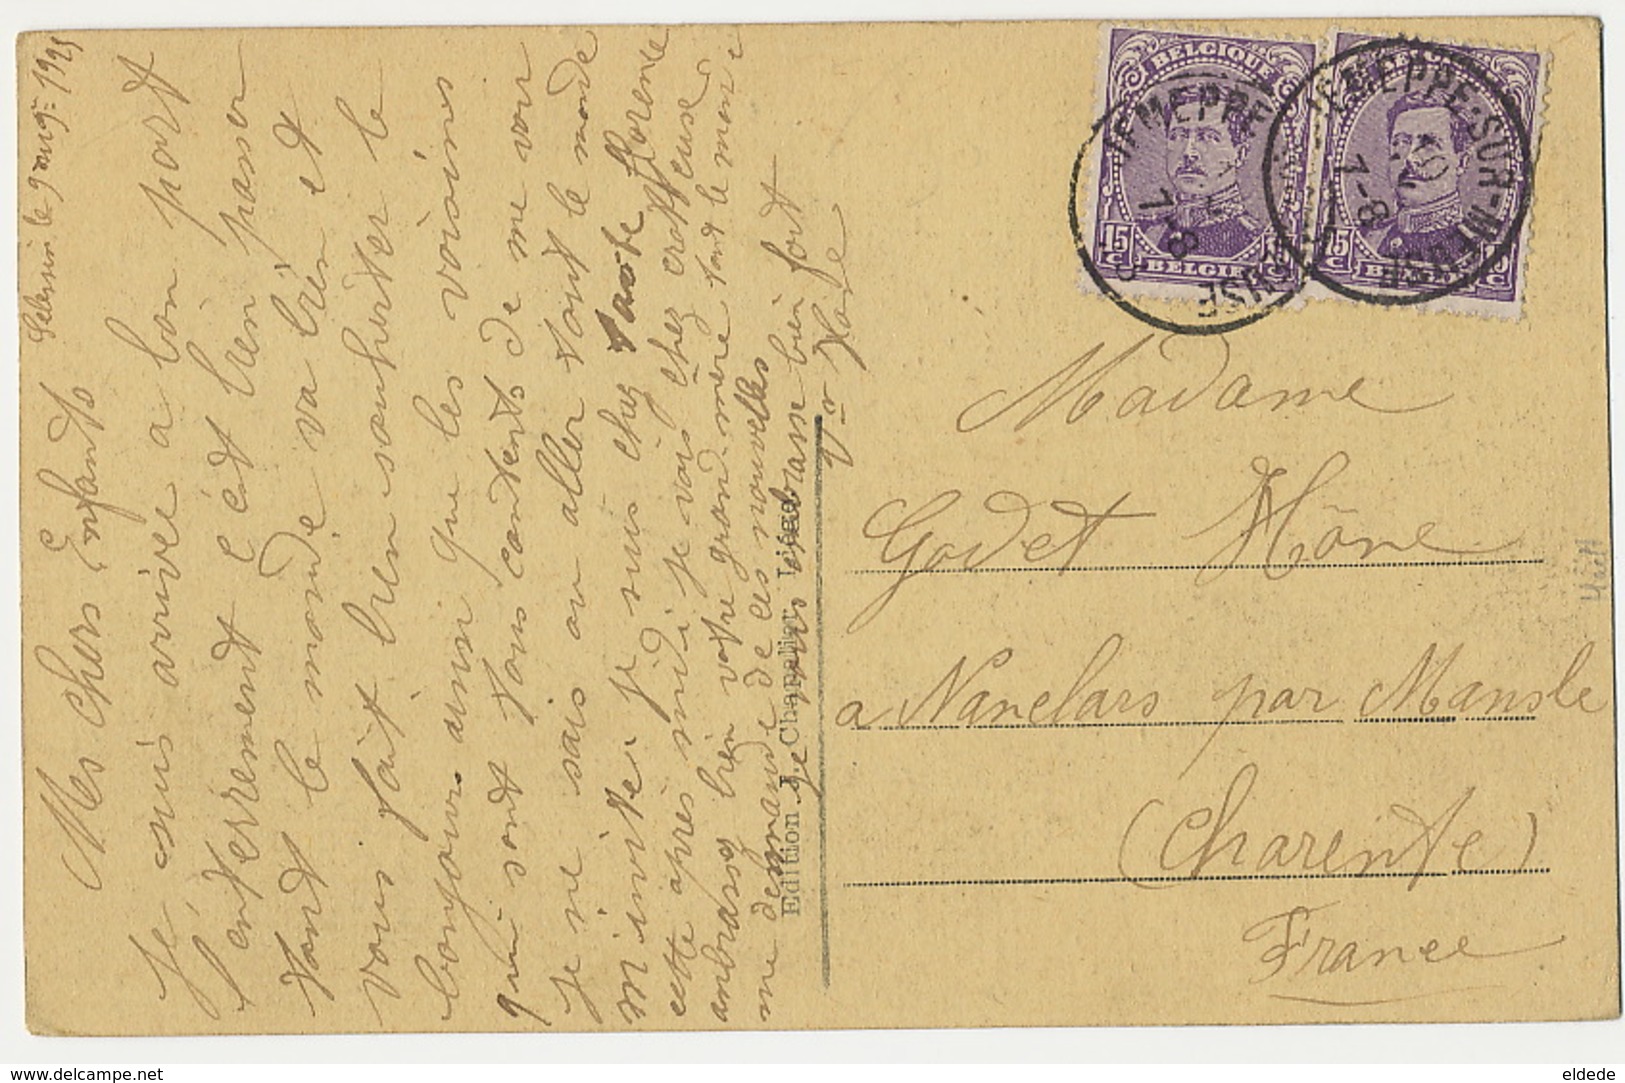 Selessin le 9 aug= 1925
Mes chers Enfants
Je suis arrivée a bon port
l'enterrement c'est bien passer
tout le monde va bien et
vous fait bien souhaiter le
bonjours ainsi que les voisines
qui sont tous contents de me voir
Je ne sais ou aller tout le monde
m'inviter je suis chez tante Florence
cette après midi je vais chez
ambrasses bien votre grand mère tout le monde
me demande de ces nouvelles
Je vous embrasse bien fort
Edition J. Chapelier Liège
BELGIQUE
15 C
BELGIE
JEMEPPE
MEUSE
7-8
BELGIQUE
15 C
BELGIE
JEMEPPE-SUR-MEUSE
7-8
Madame
Godet Mône
a Nanclars par Mansle
(Charente)
France
delcampe.net
eldede